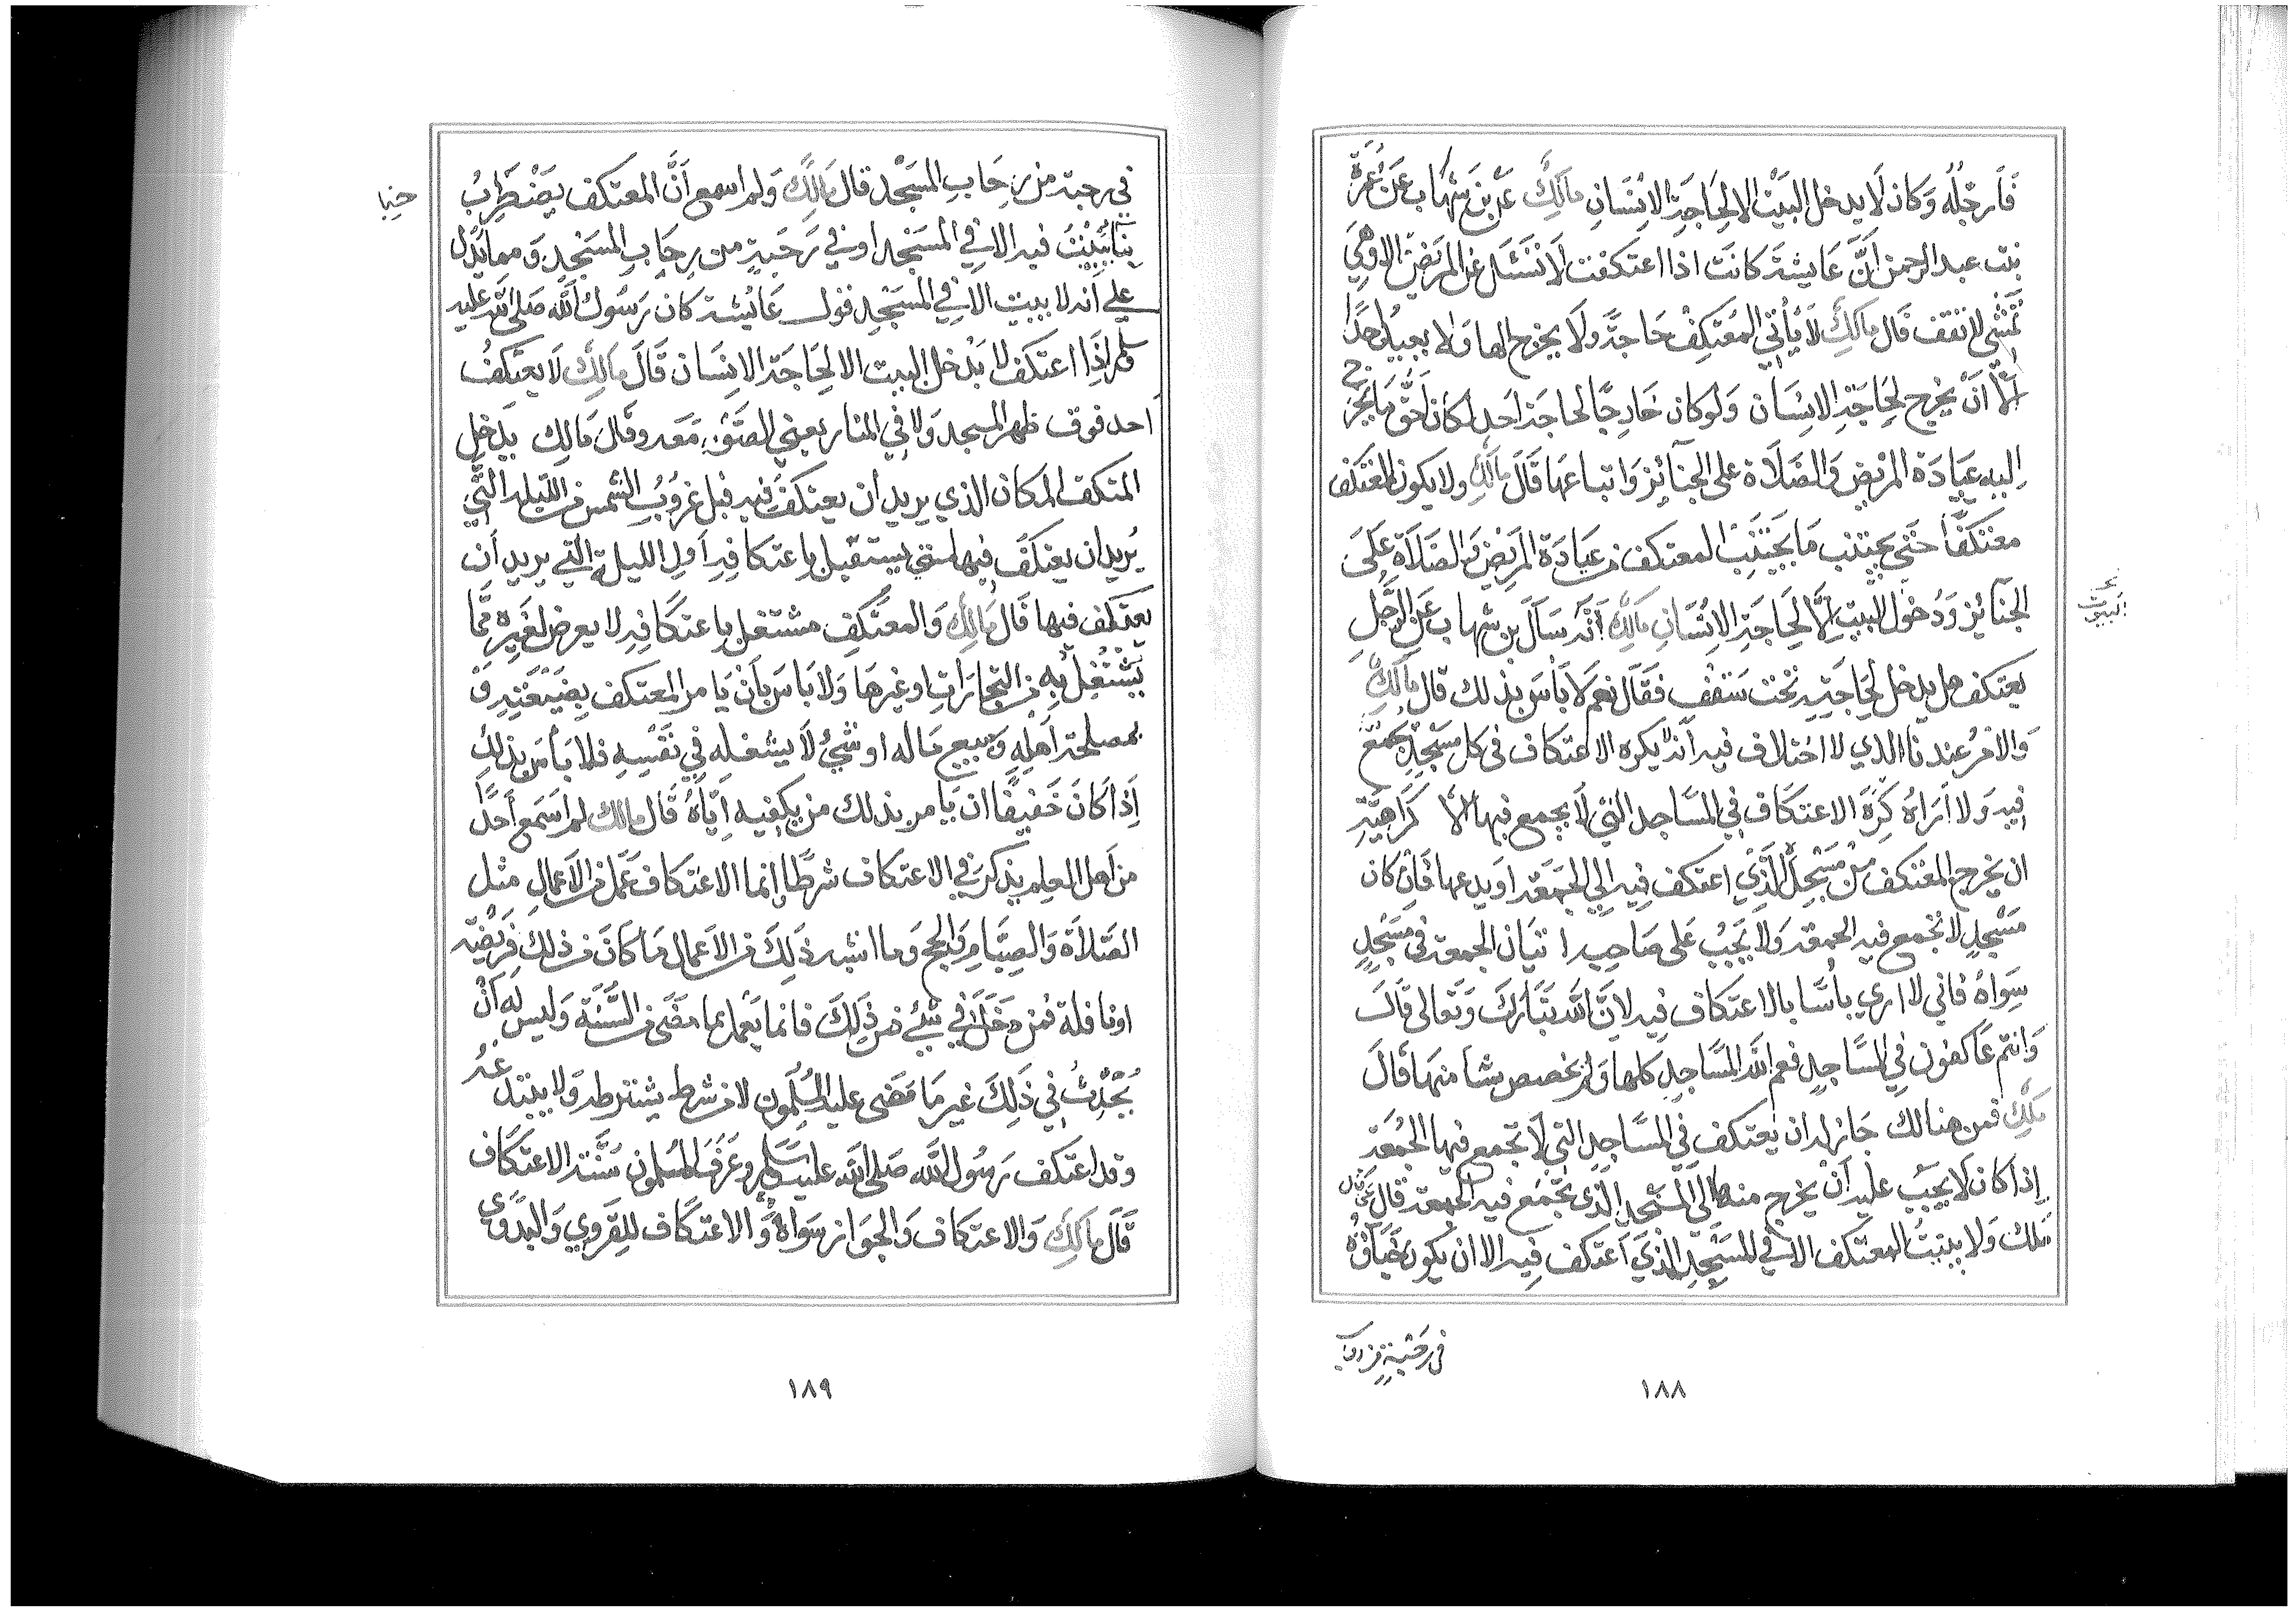 فَأرَجّلُهُ وَكان لَا يدخل البَيْت الا لِحَاجَةِ الانْسَانِ مَالِكٌ عَن بن شِهَاب عَن عَمْرَةَ
بنت عبد الرحمن اَنَّ عَايشة كانَت اذا اعتكفت لَا تَسْئَل عن المَرِيض الا وَهِيَ
تمْشى لا تقف قَال مالِك لَا يَأتي المعتكِفُ حَاجَةً وَلَا يخرج لها وَلا يعين احدًا
اِلّا اَنْ يخرج لِحَاجَةِ الانسَان وَلَوكان خَارِجًا لحاجَة اَحد لكان اَحَقّ مَا يخرج
اليه عيَادَة المَرِيض وَالصَّلَاة على الجَنَائِز وَاتباعها قَالَ مَالِك ولا يكون المعتكف
معتكفًا حَتى يجتنب مَا يَجْتَنِبُ المعتكف من عيَادَة المَرِيض وَالصَّلَاة عَلَى
الجنَائِز وَدُخول البيت اِلّا لِحَاجَةِ الاِنْسَانِ مَالِك اَنَّه سَاَلَ بن شهاب عَنِ الرَّجُلِ
يعتكف هل يدخل لِحَاجَتِهِ تحت سَقْفٍ فَقَالَ نعَم لَا بَأسَ بذلك قال مالِك
وَالامْرُ عندنا الذي لا اختلاف فيه اَنه لا يكره الاعتكاف فى كل مَسْجِدٍ يُجمَّع
فيه وَلا اُرَاهُ كرهَ الاعتكاف في المسَاجد التي لَا يجمع فيها اِلا كَرَاهِيَة
ان يخرج المعْتكف مِنْ مَسْجِدِهِ الَّذِي اعتكف فيه اِلى الجمعَة اَو يدعها فَاِن كان
مَسْجدٍ لا تجمع فيه الجمعَة وَلا يَجبُ عَلى صَاحبه اتيَان الجمعة فى مَسْجدٍ
سِوَاهُ فاني لا ارى بأسًا بالاعتكاف فيه لانَّ الله تَبَارَكَ وَتعَالى قَالَ
وَانتم عَاكفون في المسَاجدِ فعم الله المسَاجدِ كلهَا وَلم يخصص شيًا منهَا قَالَ
مَالِك فمن هنالك جَاز له ان يعتكف في المسَاجدِ التي لَا تجمع فيها الجُمعَة
اِذا كان لَا يَجِبُ عليه اَنْ يخرج منه اِلى المسْجدِ الَّذي تجْمَع فيه الجمعة قال
مَالك وَلا يبيتُ المعتكف الا في المسْجدِ الَّذِي اعتكف فيه الا ان يكون خَبَاؤه
البيوت
في رحبة من
١٨٨
في رحبة من رِحَابِ المسْجد قال مَالِك وَلم اسمع اَنَّ المعتكف يَضْطَرِبُ
بِنَاءً يَبِيْتُ فيه الا في المَسْجد او في رَحبةٍ من رِحَابِ المسْجدِ وَمما يَدُل
على اَنه لا يبيت الا في المسْجدِ قول عَائشة كان رَسُول الله صَلى الله عليه
وسلم اِذا اعتكف لا يدْخل البيت الا لِحَاجَة الانسَان قَالَ مَالِك لَا يعتكفُ
احد فوق ظهر المسجد وَلا في المنار يعني الصَّوْمَعَة وقال مَالك يدخل
المتكف المكان الذي يريد ان يعتكف فيه قبل غرُوْبُ الشمس من الليلة التي
يُريد ان يعتكف فيها حتى يستقبل باعتكافِه اَول الليلة التي يريد اَن
يعتكف فيها قَال مَالِك وَالمعتَكف مشتغل باعتكافِهِ لا يعرض لغَيْره مِمّا
يَشتَغِلُ بِهِ من التجَارَاتِ وغيرهَا وَلا باسَ بِاَنْ يَامر المعتكف بِضَيْعَتِهِ وَ
بمصلحة اَهْلِهِ وَبيع مَاله او شئ لَا يشغله في نفْسِهِ فلا بَاسَ بذلك
إذا كانَ خَفيفًا ان يَامر بذلك من يكفيه اِيّاهُ قَال مالك لم اسمَع اَحدًا
من اَهل العلم يذكر في الاعتكاف شرطًا وَاِنما الاعتكاف عَمَل من الاَعمالِ مثل
الصَّلاَة وَالصِيَام وَالحج وَما اشبه ذَلِكَ من الاَعمال مَا كانَ من ذلك فَرِيْضَة
او نافلة فمن دَخَلَ في شئ من ذَلِكَ فانما يَعمل بما مَضَى من السُّنَّة وَليسَ لَه اَنْ
يُحْدِثُ في ذَلِكَ غير مَا مَضَى عليه المُسْلِمُون لا من شرطٍ يشترطه وَلا يبتدعُهُ
وقد اعتكف رَسُول الله صَلى الله عليه وسَلم وعَرَفَ المسلمون سُنَّة الاعتكاف
قَال مَالِك وَالاعتكاف وَالجوَار سَوَاءٌ وَالاعتكاف للقروي وَالبدوى
١٨٩